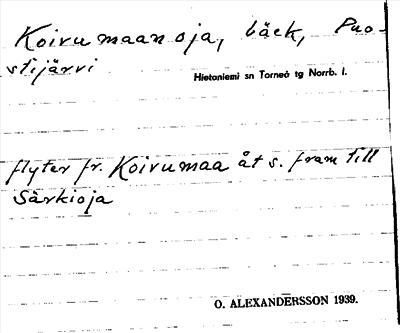 Koivumaan oja, bäck, Puo-
stijärvi
Hietaniemi sn Torneå tg Norrb. l.
flyter fr. Koivumaa åt s. fram till
Särkioja
O. ALEXANDERSSON 1939.